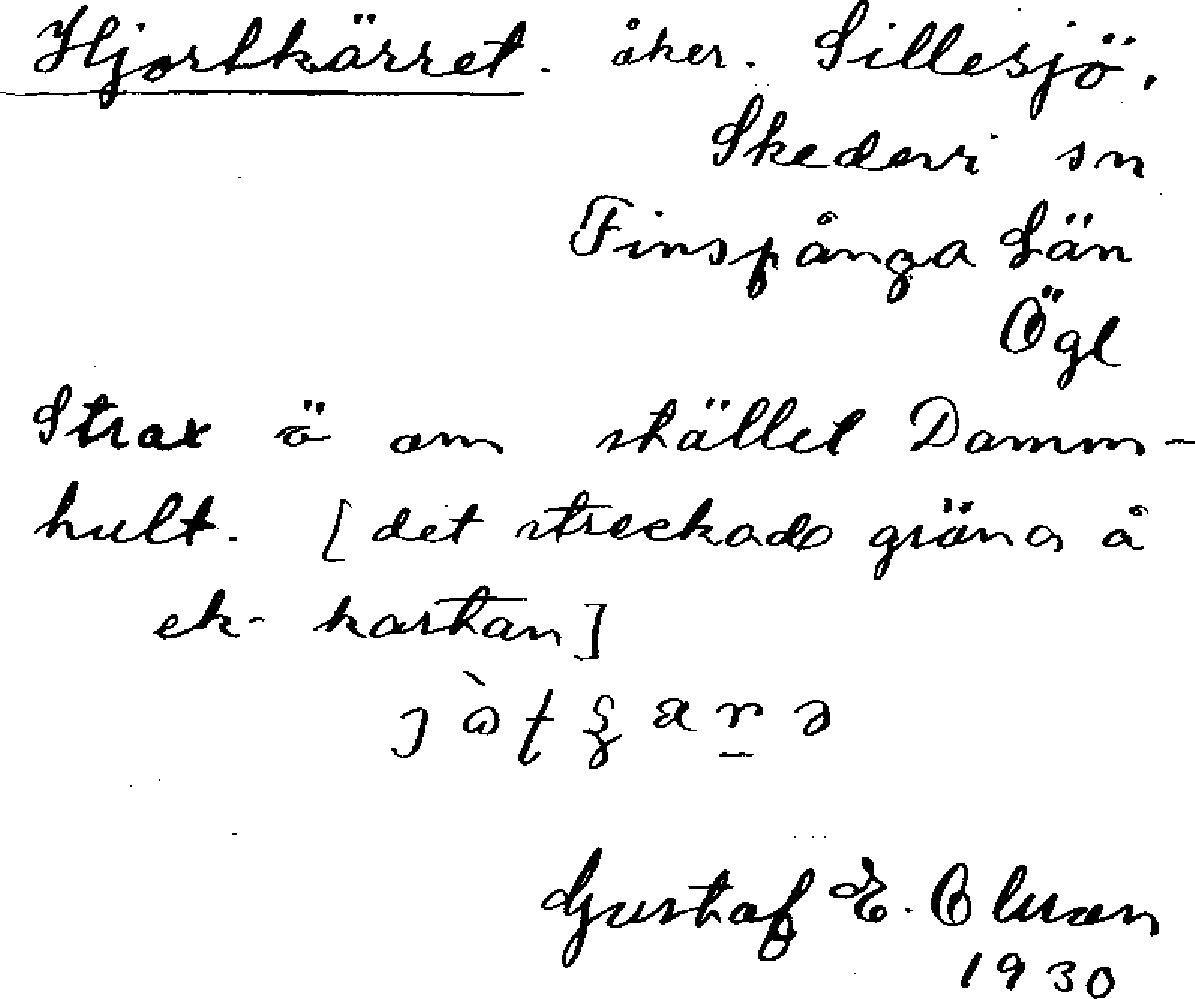 Hjortkärret. åker. Sillesjö.
Skedevi sn
Finspånga Län
Ögl
Strax ö om stället Damm-
hult. [det streckade gröna å
ek-kartan]
Gustaf E. Olsson
1930